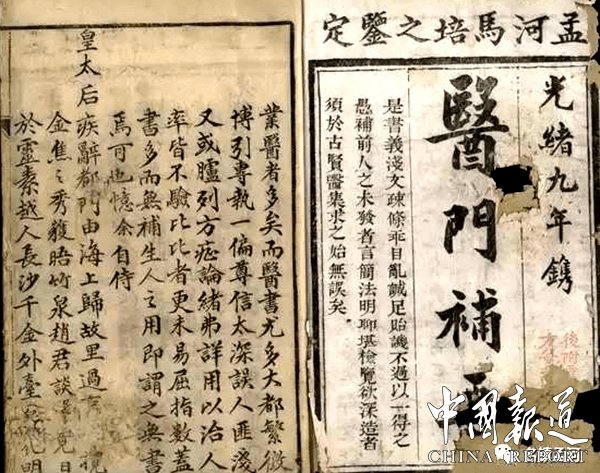 孟河馬培之鑒定
光緒九年鐫
醫門補要
是書義淺文疎條乖目亂誠足貽譏不過以一得之
愚補前人之未發者言簡法明聊堪檢覽欲深造者
須於古賢醫集求之始無誤矣
後附
業醫者多矣而醫書尤多大都繁徵
博引專執一偏尊信太深誤人匪淺
又或臚列方症論緒弟詳用以治人
率皆不驗比比者更未易屈指數蓋
書多而無補生人之用即謂之無書
焉可也憶余自侍
皇太后疾辭都門由海上歸故里過
金焦之秀獲晤竹泉趙君談竟日
於靈素越人長沙千金外臺化明
中國報道
CHINA REPORT